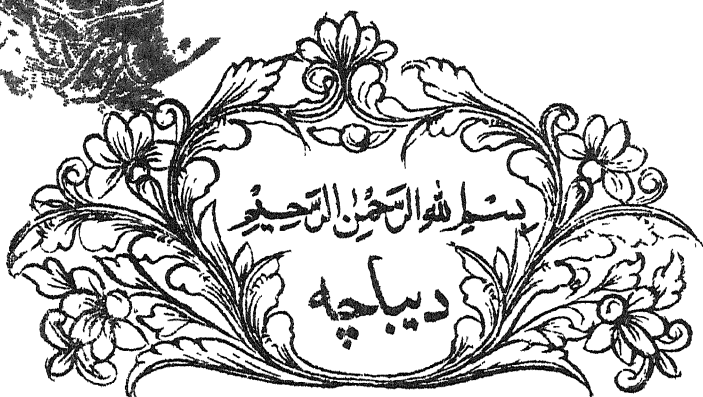 بِسْمِ اللهِ الرَّحْمٰنِ الرَّحِيْمِ
دیباچہ